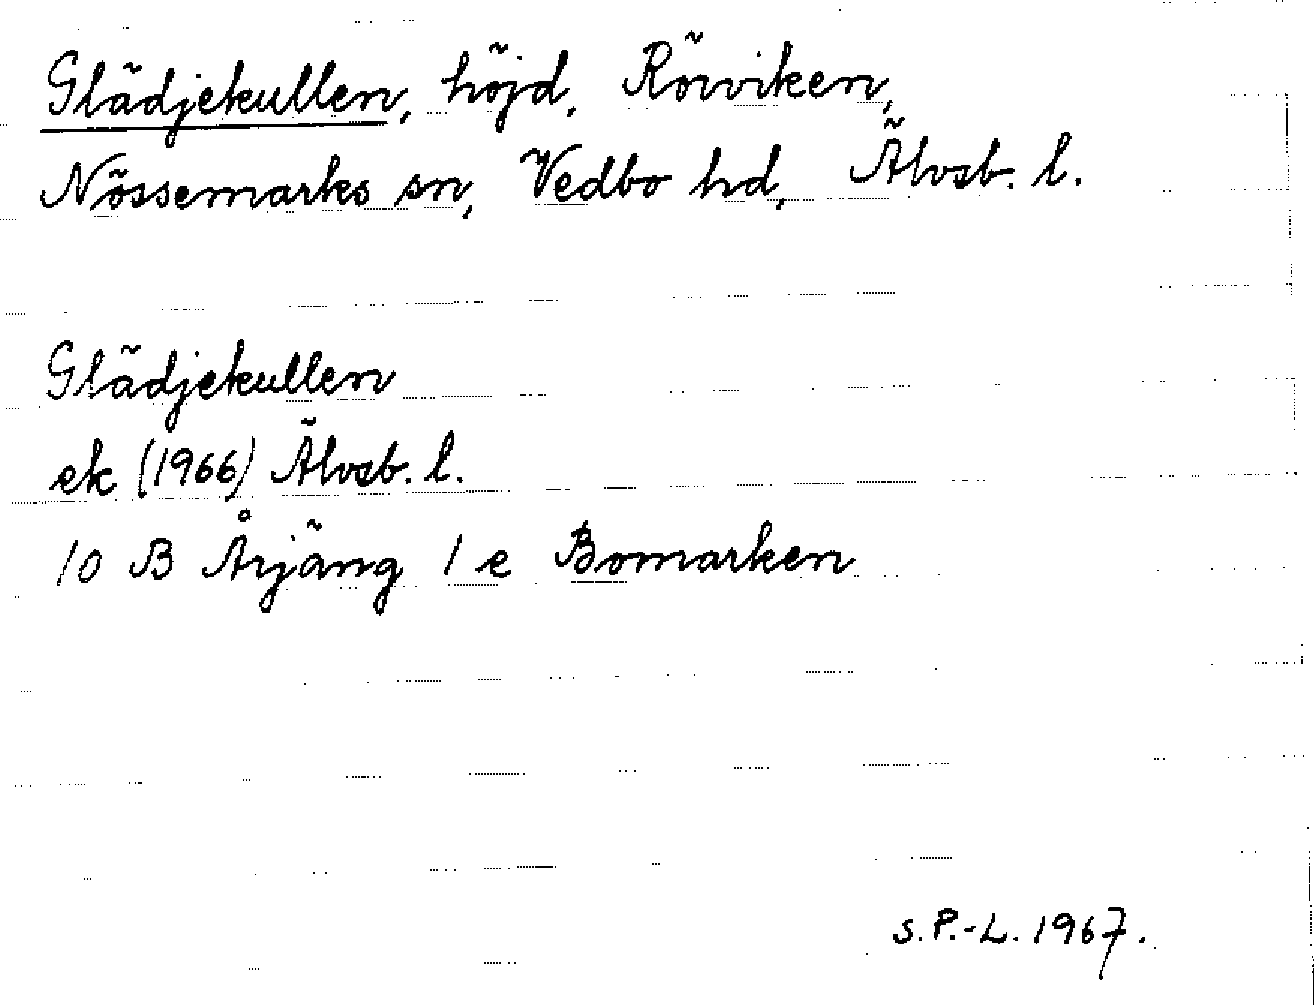 Glädjekullen, höjd, Rörviken,
Nössemarks sn, Vedbo hd, Älvsb. l.
Glädjekullen
ek (1966) Älvsb. l.
10 B Årjäng 1 e Bomarken
s. P.-L. 1967.